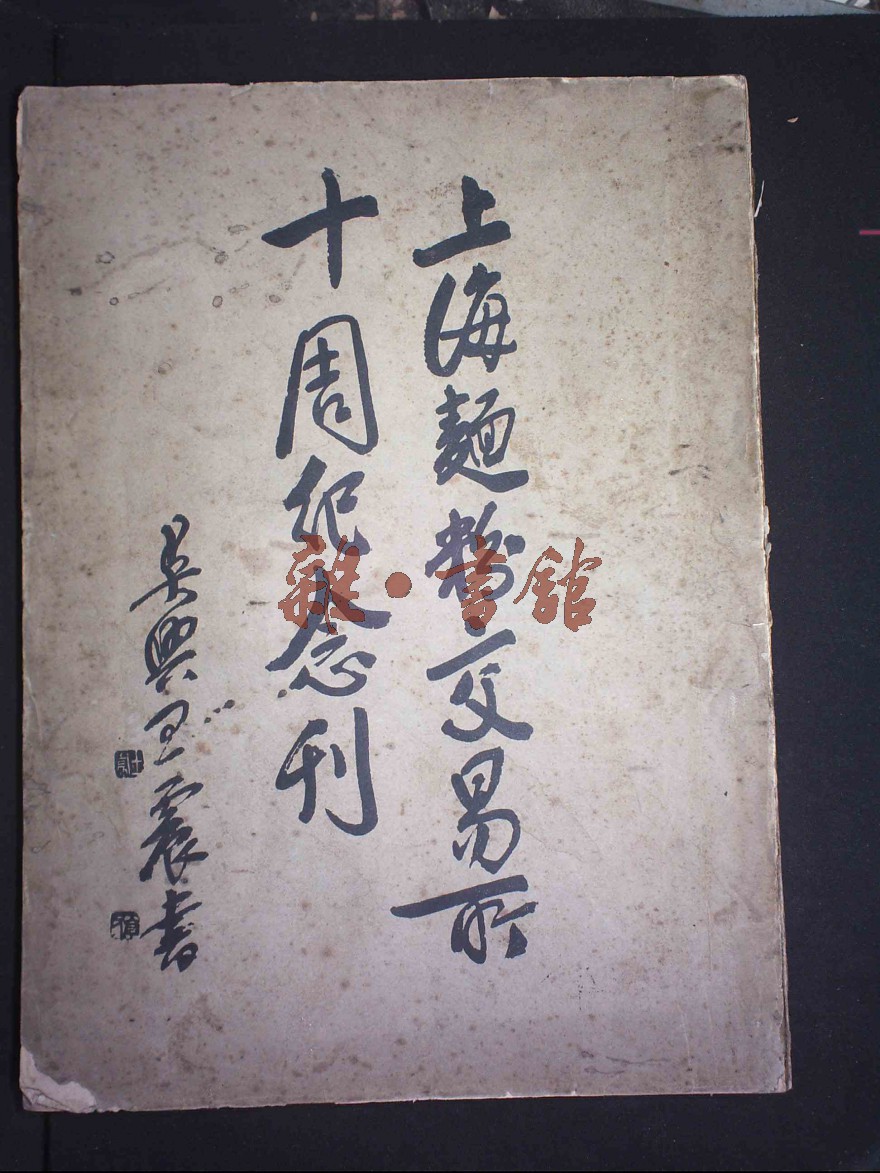 上海麵粉交易所
十周紀念刊
吴興王震書
雜·書館